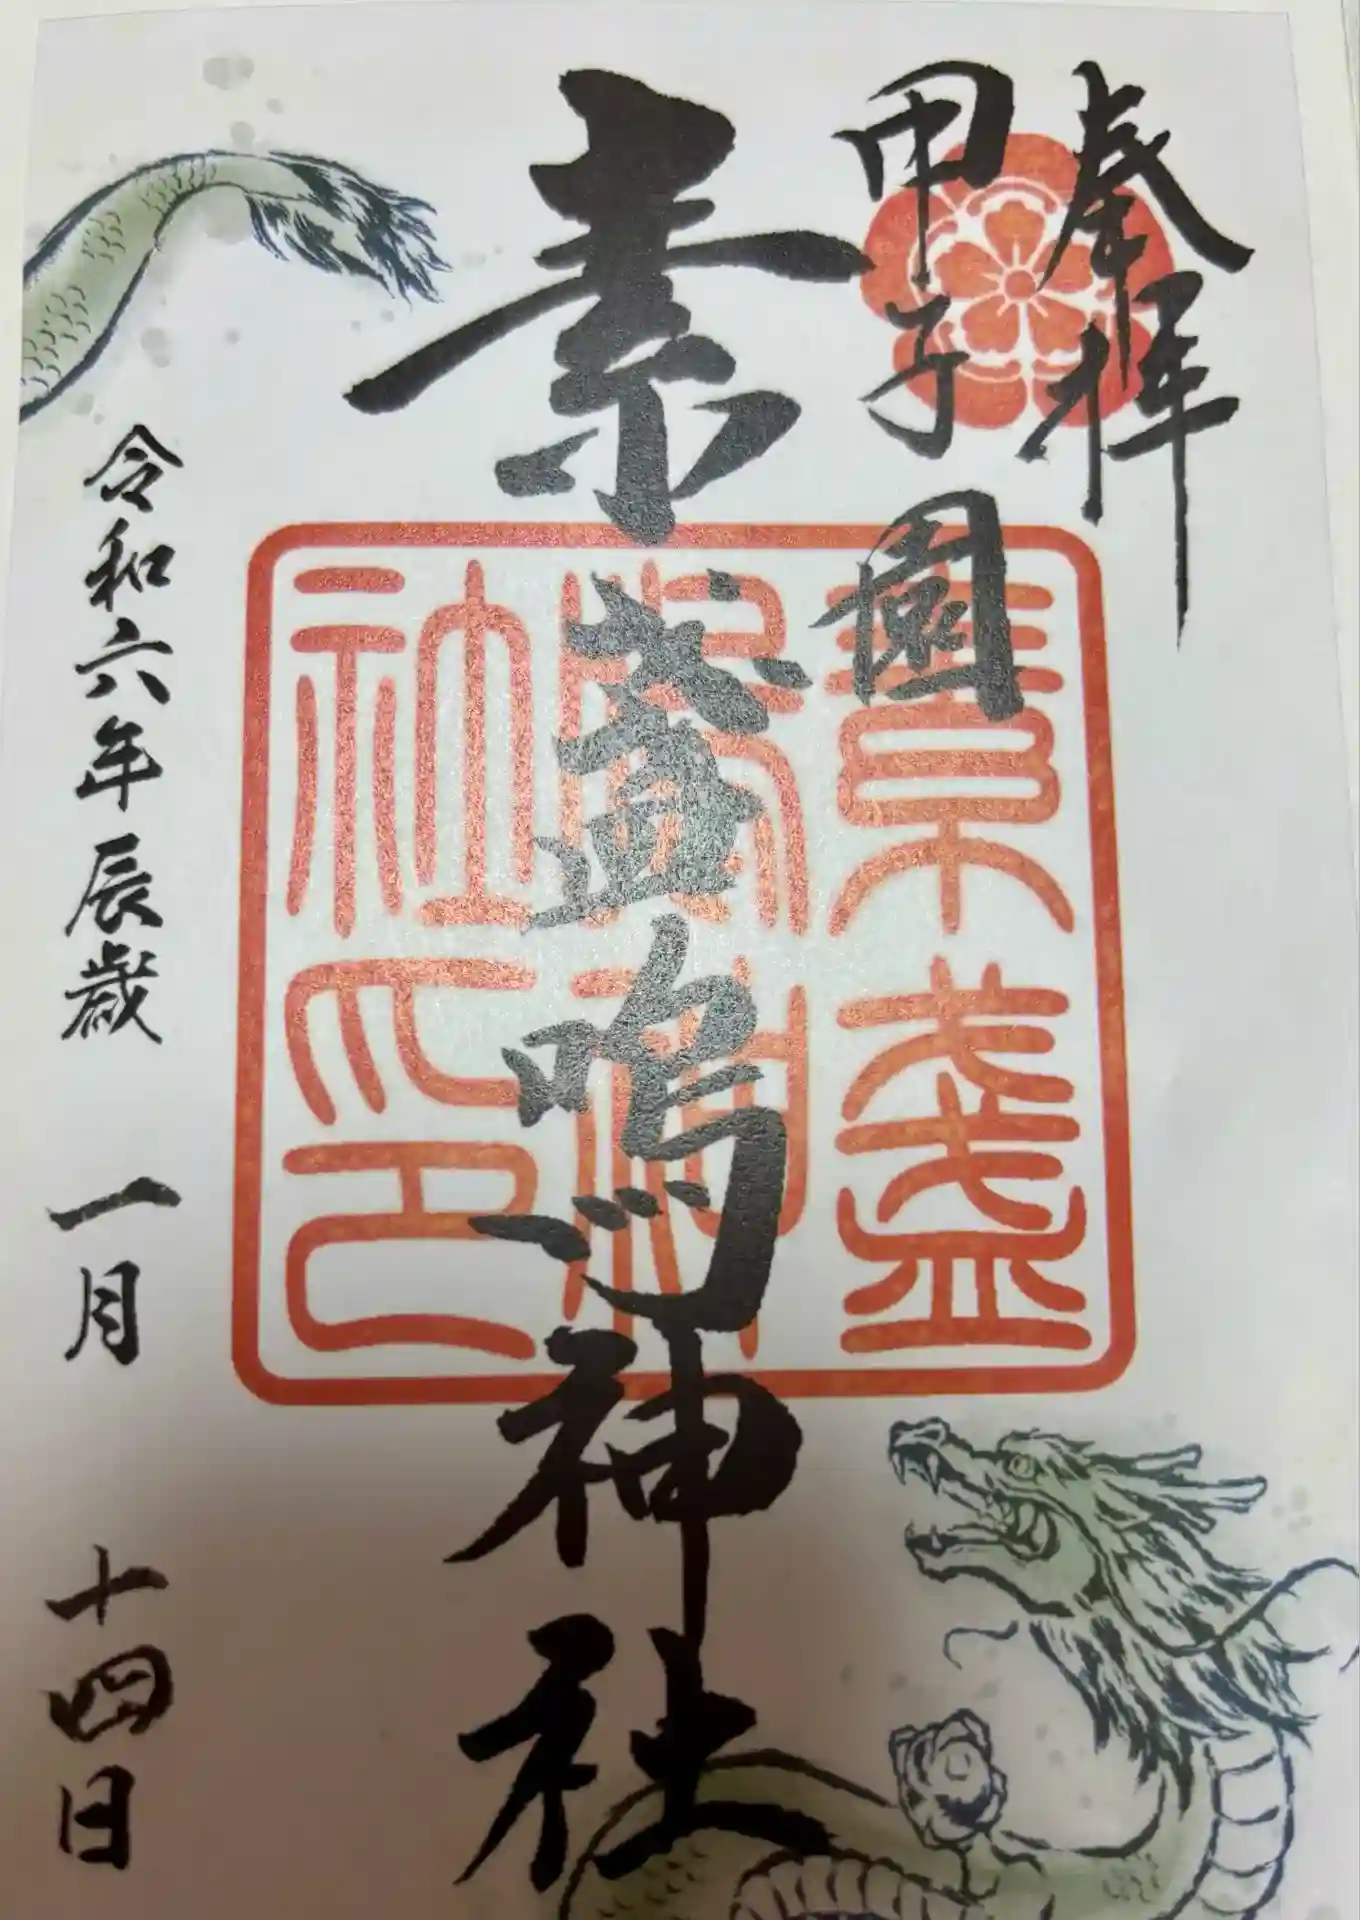 奉拝
甲子園
素盞嗚神社
素盞
嗚神
社印
令和六年辰歳 一月 十四日